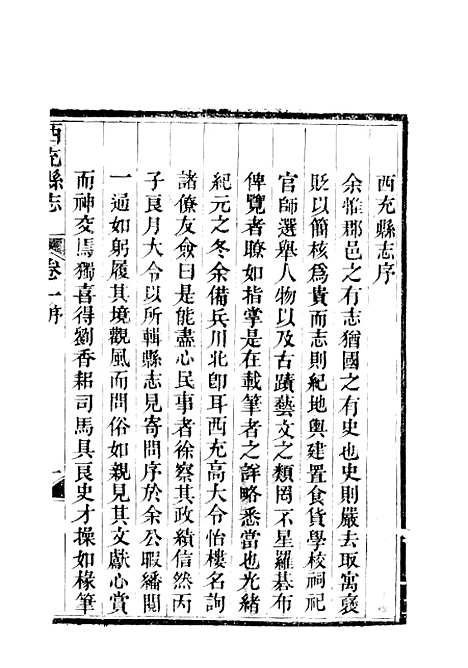 西充縣志序
余惟郡邑之有志猶國之有史也史則嚴去取寓褒
貶以簡核爲貴而志則紀地輿建置食貨學校祠祀
官師選舉人物以及古蹟藝文之類罔不星羅碁布
俾覽者瞭如指掌是在載筆者之詳略悉當也光緒
紀元之冬余備兵川北卽耳西充高大令怡樓名詢
諸僚友僉曰是能盡心民事者徐察其政績信然丙
子良月大令以所輯縣志見寄問序於余公暇繙閱
一過如躬履其境觀風而問俗如親見其文獻心賞
而神交焉獨喜得劉香耜司馬具良史才操如椽筆
西充縣志
卷一序
一